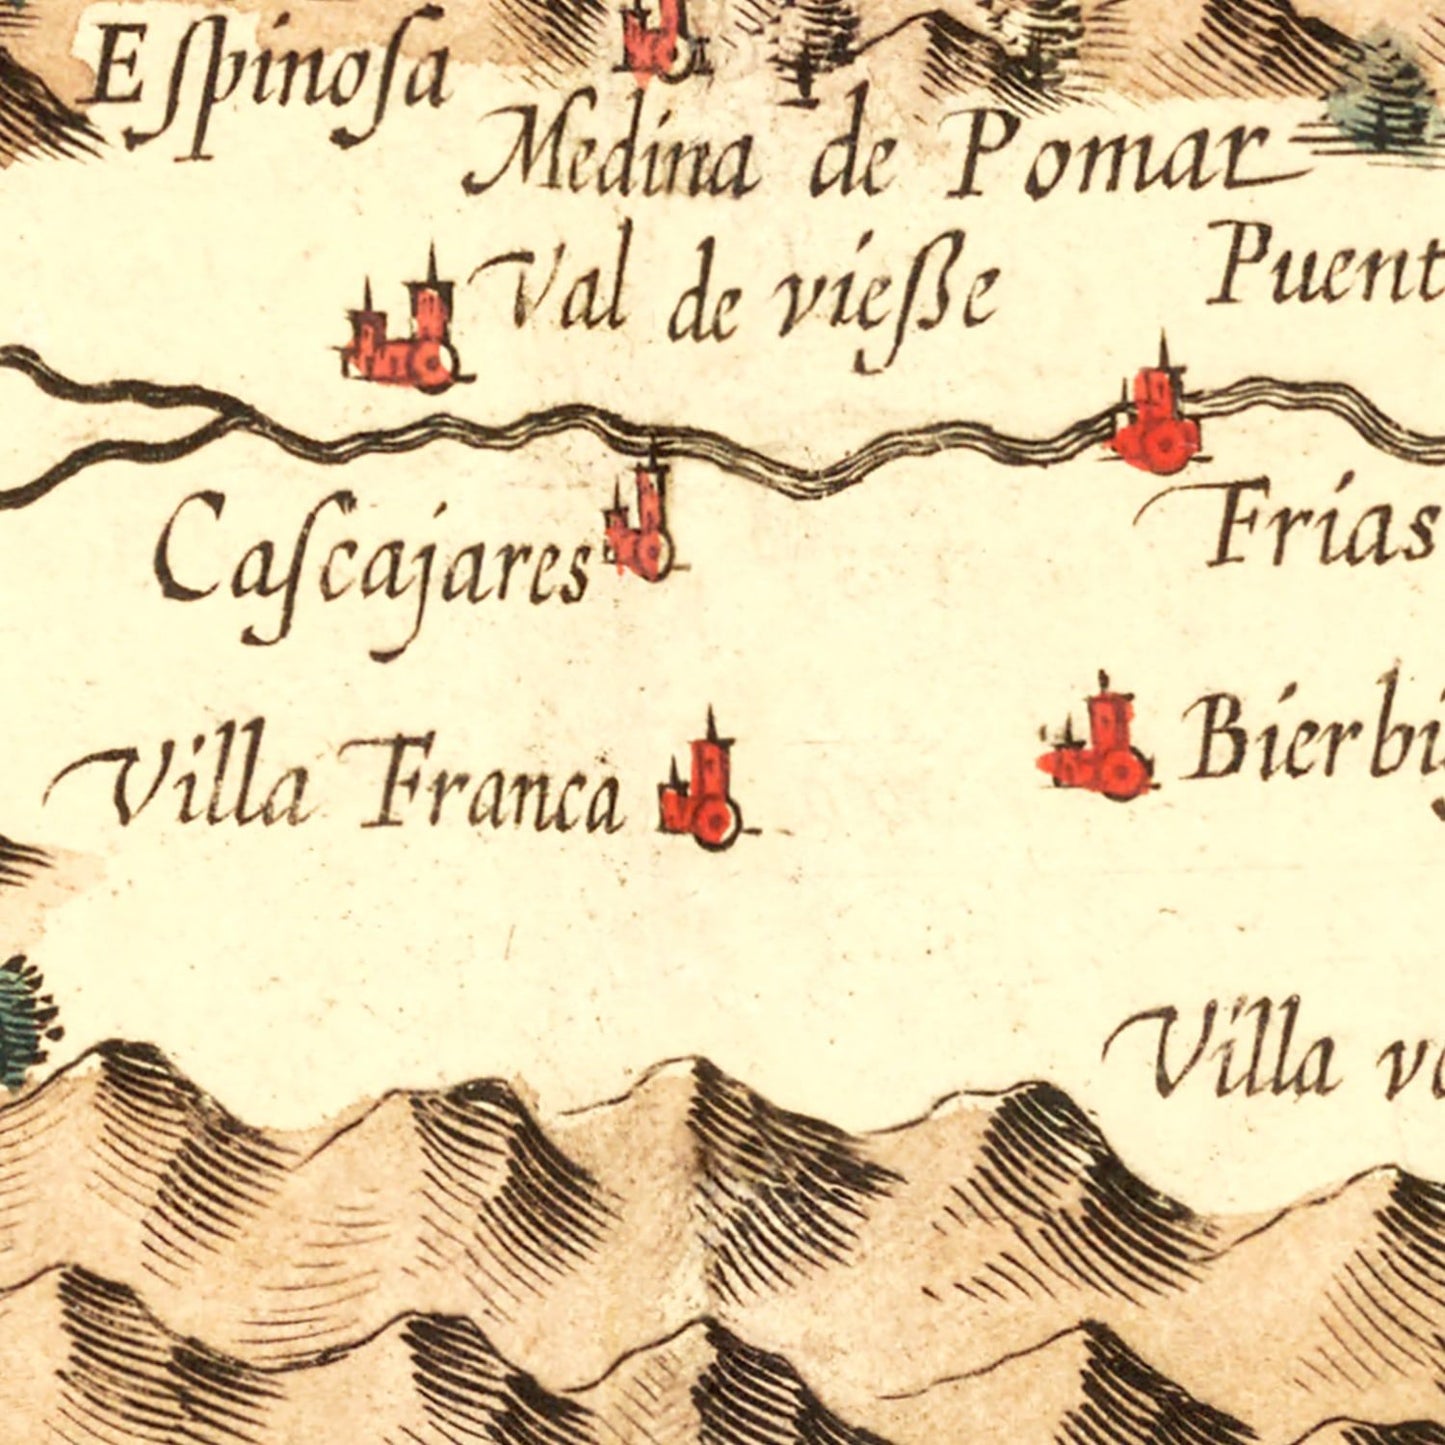 Eſpinoſa
Medina de Pomar
Val de vieſße
Puent
Caſcajares
Frias
Villa Franca
Bierbi
Villa